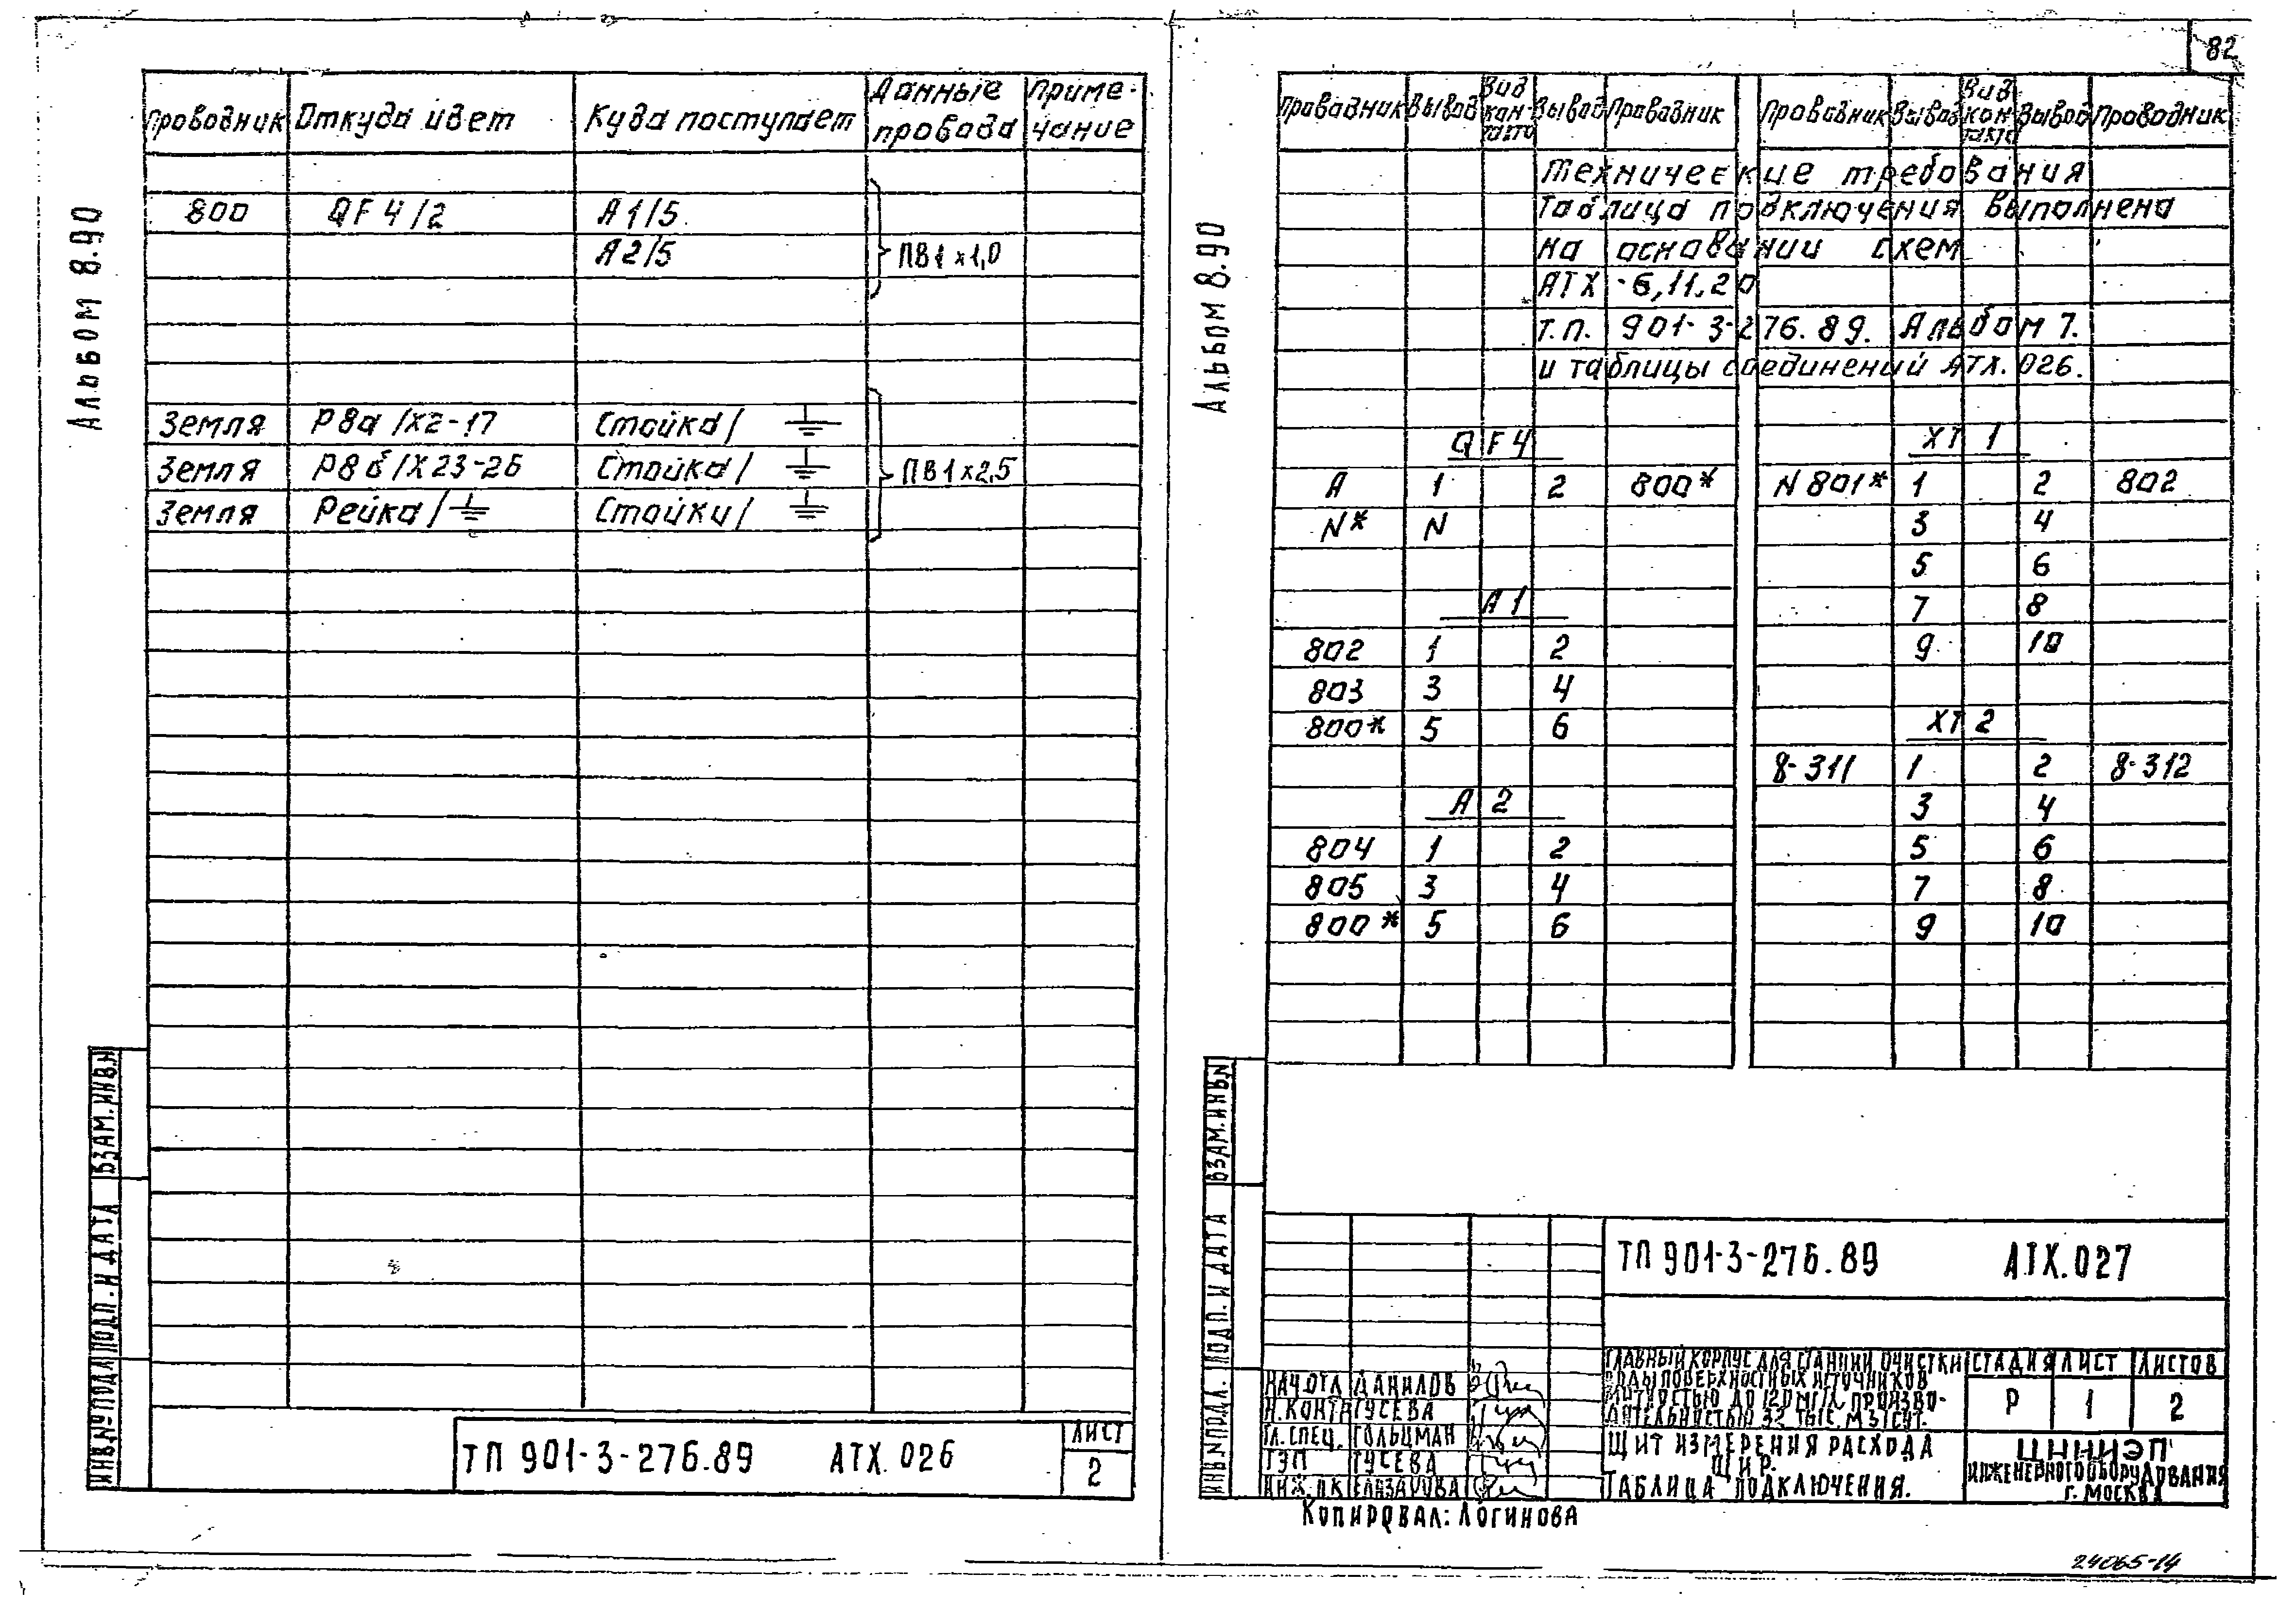 82
Альбом 8.90
Проводник Откуда идет Куда поступает Данные провода Приме-чание
800 QF4/2 А1/5
А2/5
ПВ1х1,0
Земля Р8а/Х2-17 Стойка/
Земля Р8б/Х23-26 Стойка/
ПВ1х2,5
Земля Рейка/ Стойки/
ВЗАМ.ИНВ.N
ПОДП. И ДАТА
ИНВ.№ ПОДЛ
ТП 901-3-276.89 АТХ.026
ЛИСТ
2
Альбом 8.90
Проводник Вывод Вид кон-такта Вывод Проводник Проводник Вывод Вид кон-такта Вывод Проводник
Технические требования
Таблица подключения выполнена
на основании схем
АТХ-6,11,20
т.п. 901-3-276.89. Альбом 7.
и таблицы соединений АТХ.026.
QF4 XT1
А 1 2 800* N801* 1 2 802
N* N 3 4
5 6
А1 7 8
802 1 2 9 10
803 3 4
800* 5 6 XT2
8-311 1 2 8-312
А2 3 4
804 1 2 5 6
805 3 4 7 8
800* 5 6 9 10
ВЗАМ.ИНВ.N
ПОДП. И ДАТА
ИНВ.N ПОДЛ.
ТП 901-3-276.89 АТХ.027
ГЛАВНЫЙ КОРПУС ДЛЯ СТАНЦИИ ОЧИСТКИ
ВОДЫ ПОВЕРХНОСТНЫХ ИСТОЧНИКОВ
МУТНОСТЬЮ ДО 120 МГ/Л ПРОИЗВО-
ДИТЕЛЬНОСТЬЮ 32 ТЫС. М3/СУТ.
СТАДИЯ ЛИСТ ЛИСТОВ
Р 1 2
НАЧ.ОТД ДАНИЛОВ
Н.КОНТР ГУСЕВА
ГЛ.СПЕЦ. ГОЛЬЦМАН
ГЭП ГУСЕВА
ИНЖ.ПК
ЩИТ ИЗМЕРЕНИЯ РАСХОДА
ЩИР.
ТАБЛИЦА ПОДКЛЮЧЕНИЯ.
ЦНИИЭП
ИНЖЕНЕРНОГО ОБОРУДОВАНИЯ
Г. МОСКВА
Копировал: Логинова
24065-14